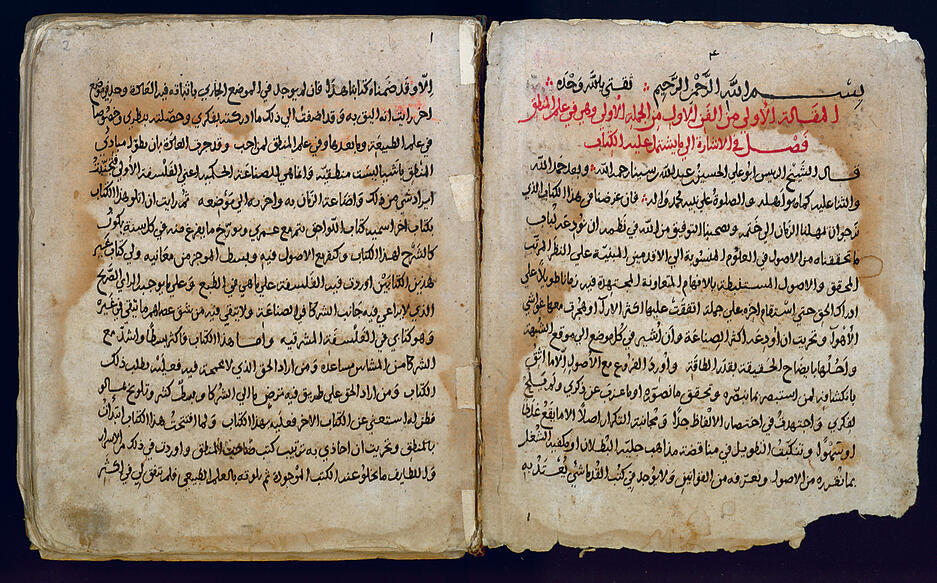 ٤
بسم الله الرحمن الرحيم ثقتي بالله وحده
المقالة الأولى من الفن الأول من الجملة الأولى وهي في علم المنطق
فصل في الاشارة الى ما يشتمل عليه الكتاب
قال الشيخ الرئيس ابو علي الحسين بن عبد الله بن سينا رحمه الله وبعد حمد الله
والثنا عليه كما هو اهله والصلوة على نبيه محمد واله فان غرضنا في هذا الكتاب الذي
نرجو ان يمهلنا الزمان الى ختمه ويصحبنا التوفيق من الله في نظمه ان نودعه لباب
ما تحققناه من الاصول في العلوم المنسوبة الى الاقدمين المبنية على النظر المرتب
المحقق والاصول المستنبطة بالافهام المتعاونة المجتهد فيه زمانا طويلا على
ادراك الحق حتى استقام اخره على جملة اتفقت عليها اكثر الارآ وهجرت معها غواشي
الاهوآ وتحريت ان اودعه اكثر الصناعة وان اشير في كل موضع الى موقع الشبهة
واحلها بايضاح الحقيقة بقدر الطاقة واورد الفروع مع الاصول الا ما اثق
بانكشافه لمن استبصر بما نبصره وتحقق ما نصوره او ما عزب عن ذكري ولم يلح
لفكري واجتهدت في اختصار الالفاظ جدا ومجانبة التكرار اصلا الا ما يقع غلطا
او سهوا وتنكبت التطويل في مناقضة مذاهب جلية البطلان او مكفية الشغل
بما نقرره من الاصول ونعرفه من القوانين ولا يوجد في كتب القدماء شي يعتد به
١
2
١
الا وقد ضمناه كتابنا هذا فان لم يوجد في الموضع الجاري باثباته فيه العادة وجد في موضع
اخر رايت انه اليق به وقد اضفت الى ذلك مما ادركته بفكري وحصلته بنظري وخصوصا
في علم الطبيعة وما بعدها وفي علم المنطق وقد جرت العادة بان يطول مبادي
المنطق باشيا ليست منطقية وانما هي للصناعة الحكمية اعني الفلسفة الاولى فتجنبت
ايراد شي من ذلك واضاعة الزمان به واخرته الى موضعه ثم رايت ان اتلو هذا الكتاب
بكتاب اخر اسميه كتاب اللواحق يتم مع عمري ويورخ بما يفرغ منه في كل سنة يكون
كالشرح لهذا الكتاب وكتفريع الاصول فيه وبسط الموجز من معانيه ولي كتاب غير
هذين الكتابين اوردت فيه الفلسفة على ما هي في الطبع وعلى ما يوجبه الراي الصريح
الذي لا يراعى فيه جانب الشركا في الصناعة ولا يتقى فيه من شق عصاهم ما يتقى في غيره
وهو كتابي في الفلسفة المشرقية واما هذا الكتاب فاكثر بسطا واشد مع
الشركا من المشائين مساعدة ومن اراد الحق الذي لا مجمجة فيه فعليه بطلب ذلك
الكتاب ومن اراد الحق على طريق فيه ترض ما الى الشركا وبسط كثير وتلويح بما لو
فطن له استغنى عن الكتاب الاخر فعليه بهذا الكتاب ولما افتتحت هذا الكتاب ابتدات
بالمنطق وتحريت ان احاذي به ترتيب كتب صاحب المنطق واوردت في ذلك من الاسرار
واللطايف ما تخلو عنه الكتب الموجودة ثم تلوته بالعلم الطبيعي فلم يتفق لي في اكثر